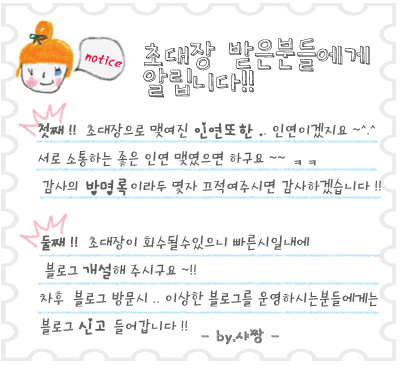 notice
초대장 받은분들에게
알립니다!!
첫째 !! 초대장으로 맺여진 인연또한 .. 인연이겠지요 ~^.^
서로 소통하는 좋은 인연 맺였으면 하구요 ~~ ㅋㅋ
감사의 방명록이라두 몇자 끄적여주시면 감사하겠습니다 !!
둘째 !! 초대장이 회수될수있으니 빠른시일내에
블로그 개설해 주시구요 ~!!
차후 블로그 방문시 .. 이상한 블로그를 운영하시는분들에게는
블로그 신고 들어갑니다 !!
- by.샤짱 -